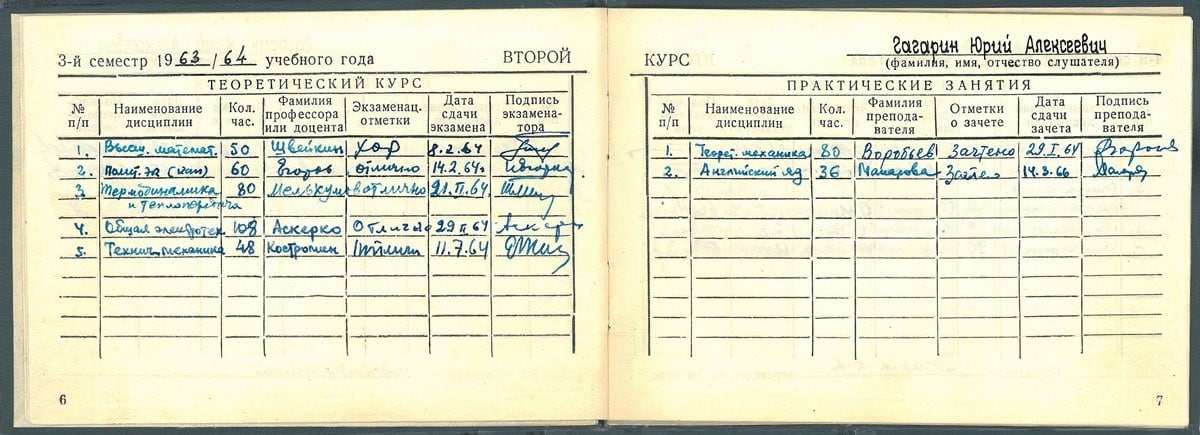 3-й семестр 1963/64 учебного года ВТОРОЙ
ТЕОРЕТИЧЕСКИЙ КУРС
№ п/п Наименование дисциплин Кол. час. Фамилия профессора или доцента Экзаменац. отметки Дата сдачи экзамена Подпись экзаменатора
1. Высш. математ. 50 Швейкин хор 8.2.64
2. Полит. эк (кап) 60 Егоров отлично 14.2.64
3. Термодинамика 80 отлично 21.II.64
и теплопередача
4. Общая электротех 108 Аскерко Отлично 29.II.64
5. Технич. механика 48 Костромин 11.7.64
6
КУРС Гагарин Юрий Алексеевич
(фамилия, имя, отчество слушателя)
ПРАКТИЧЕСКИЕ ЗАНЯТИЯ
№ п/п Наименование дисциплин Кол. час. Фамилия преподавателя Отметки о зачете Дата сдачи зачета Подпись преподавателя
1. Теорет. механика 80 Воробьев Зачтено 29.I.64
2. Английский яз 36 Макарова
7